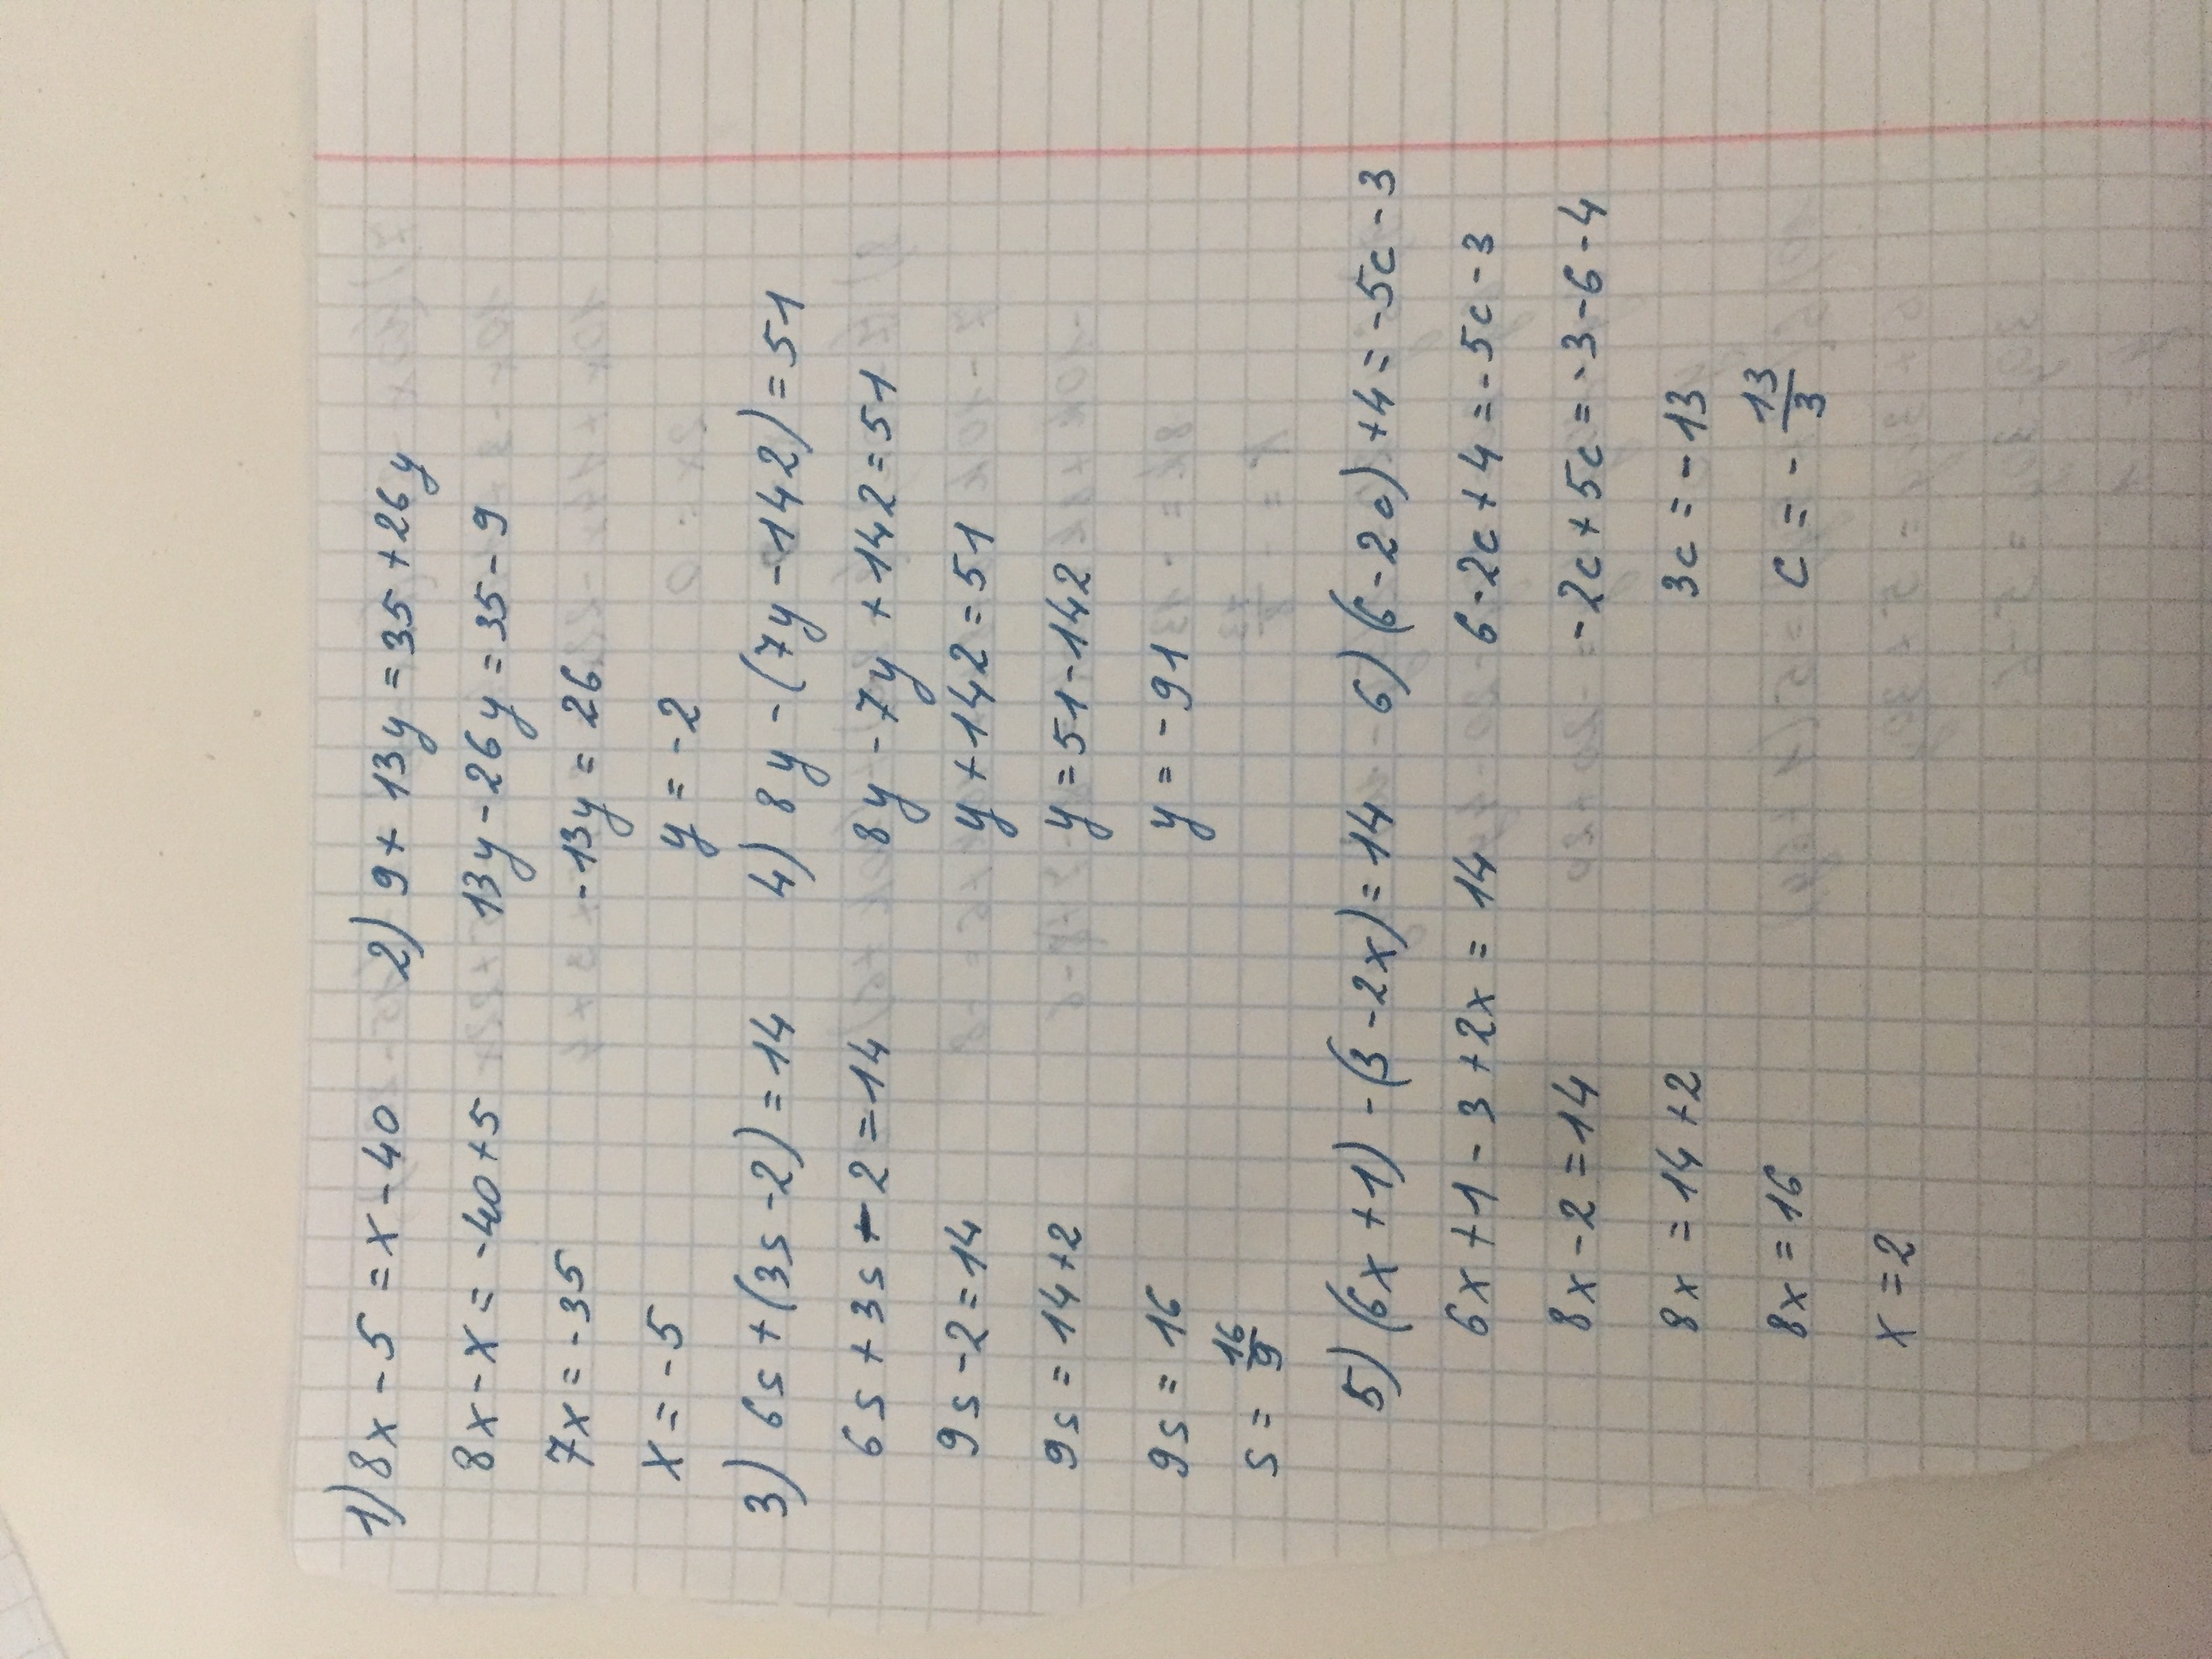 1) 8x - 5 = x - 40
8x - x = -40 + 5
7x = -35
x = -5
2) 9 + 13y = 35 + 26y
13y - 26y = 35 - 9
-13y = 26
y = -2
3) 6s + (3s - 2) = 14
6s + 3s - 2 = 14
9s - 2 = 14
9s = 14 + 2
9s = 16
s = 16/9
4) 8y - (7y - 142) = 51
8y - 7y + 142 = 51
y + 142 = 51
y = 51 - 142
y = -91
5) (6x + 1) - (3 - 2x) = 14
6x + 1 - 3 + 2x = 14
8x - 2 = 14
8x = 14 + 2
8x = 16
x = 2
6) (6 - 2c) + 4 = -5c - 3
6 - 2c + 4 = -5c - 3
-2c + 5c = -3 - 6 - 4
3c = -13
c = -13/3